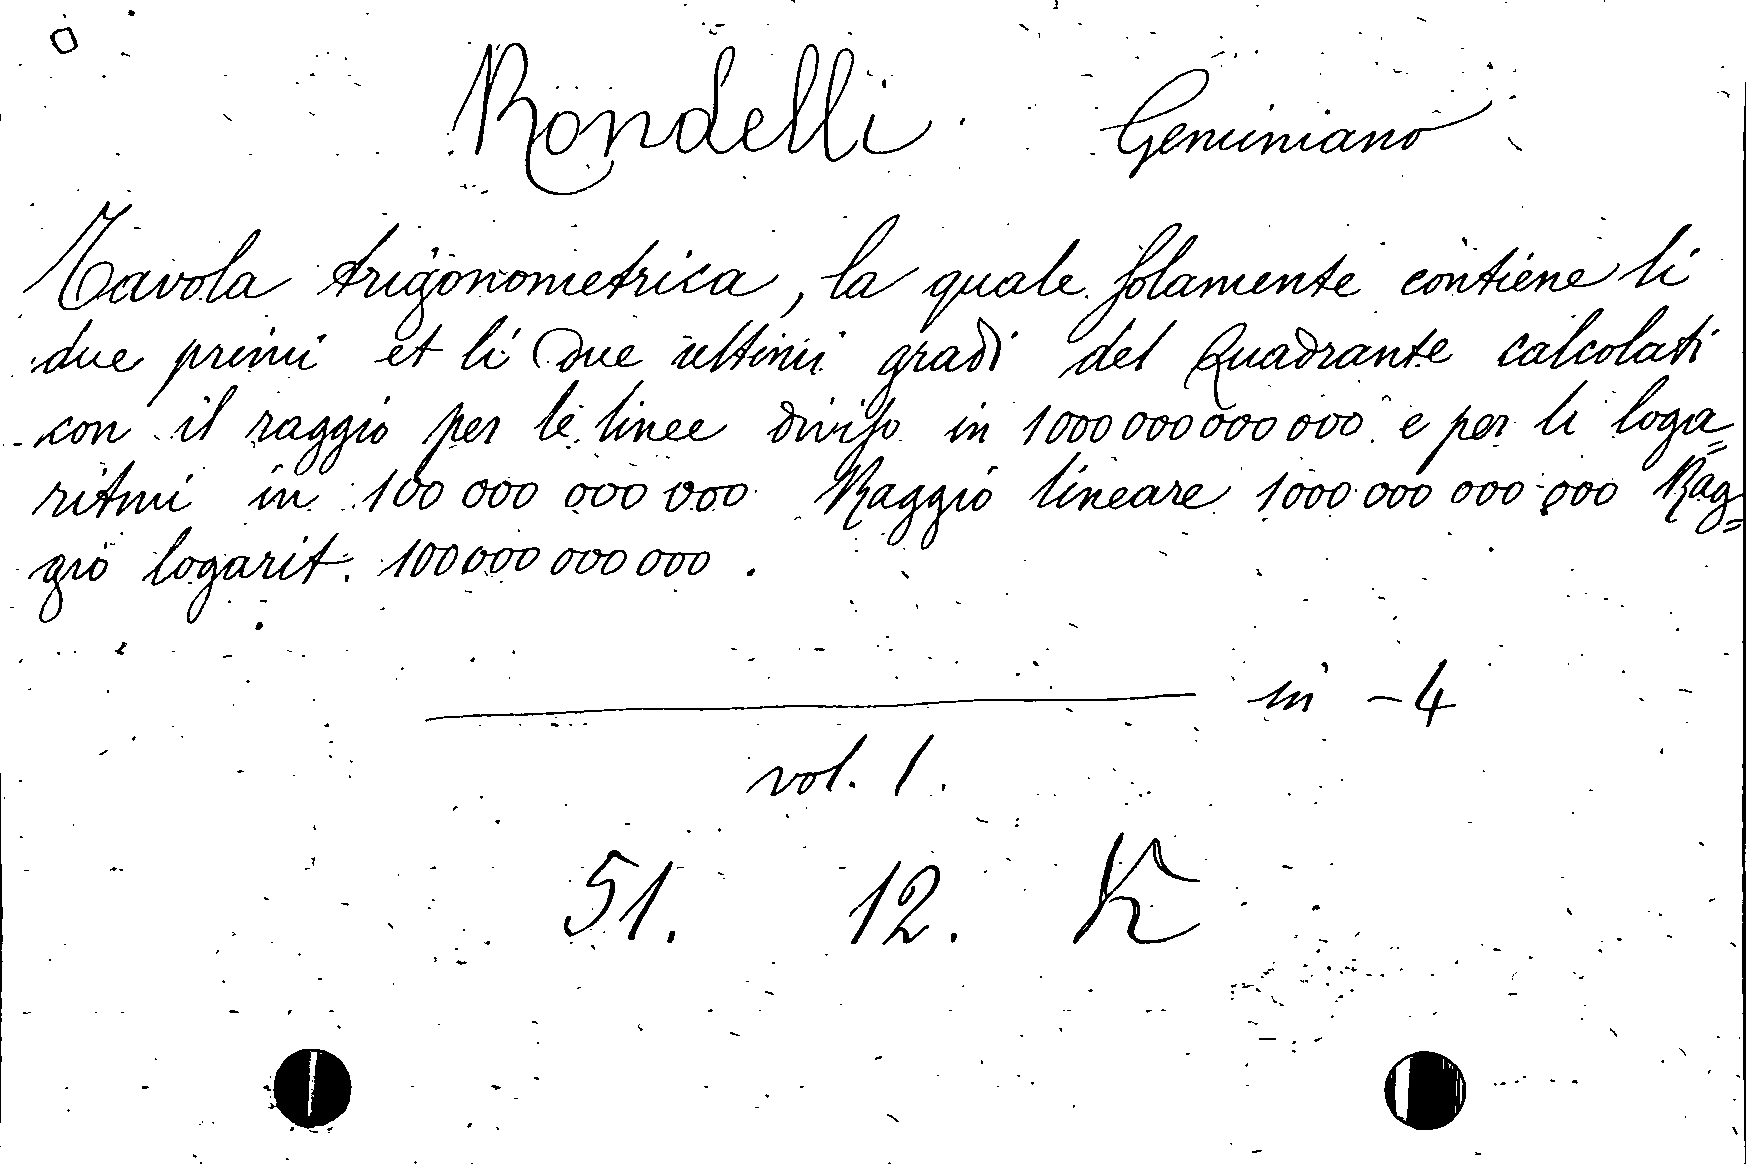 Rondelli Geminiano
Tavola trigonometrica, la quale ſolamente contiene li
due primi et li due ultimi gradi del Quadrante calcolati
con il raggio per le linee diviſo in 1000 000 000 000 e per li loga=
ritmi in 100 000 000 000 Raggio lineare 1000 000 000 000 Rag=
gio logarit. 100 000 000 000.
in -4
vol. 1.
51. 12. K